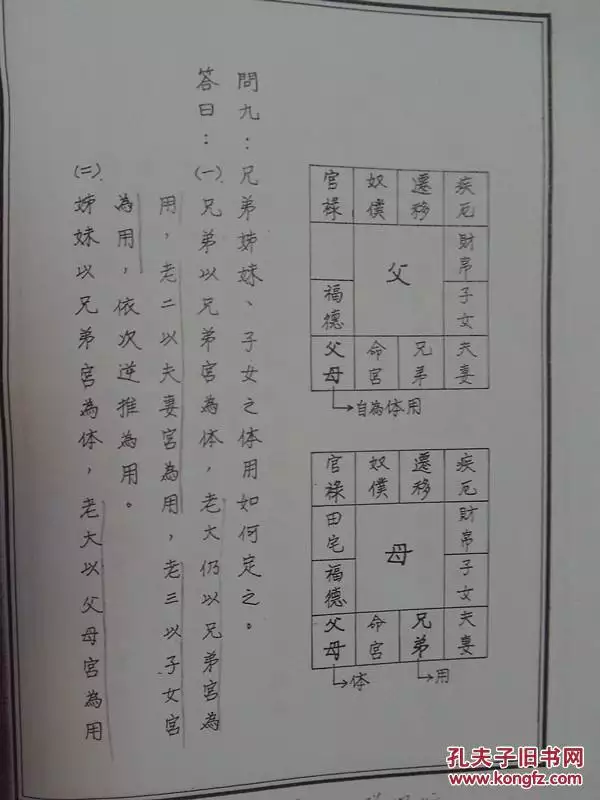 官祿 奴僕 遷移 疾厄
父 財帛
福德 子女
父母 命宮 兄弟 夫妻
自為体用
官祿 奴僕 遷移 疾厄
田宅 母 財帛
福德 子女
父母 命宮 兄弟 夫妻
体 用
問九：兄弟姊妹、子女之体用如何定之。
答曰：㈠兄弟以兄弟宮為体，老大仍以兄弟宮為
用，老二以夫妻宮為用，老三以子女宮
為用，依次逆推為用。
㈡姊妹以兄弟宮為体，老大以父母宮為用
孔夫子旧书网
www.kongfz.com